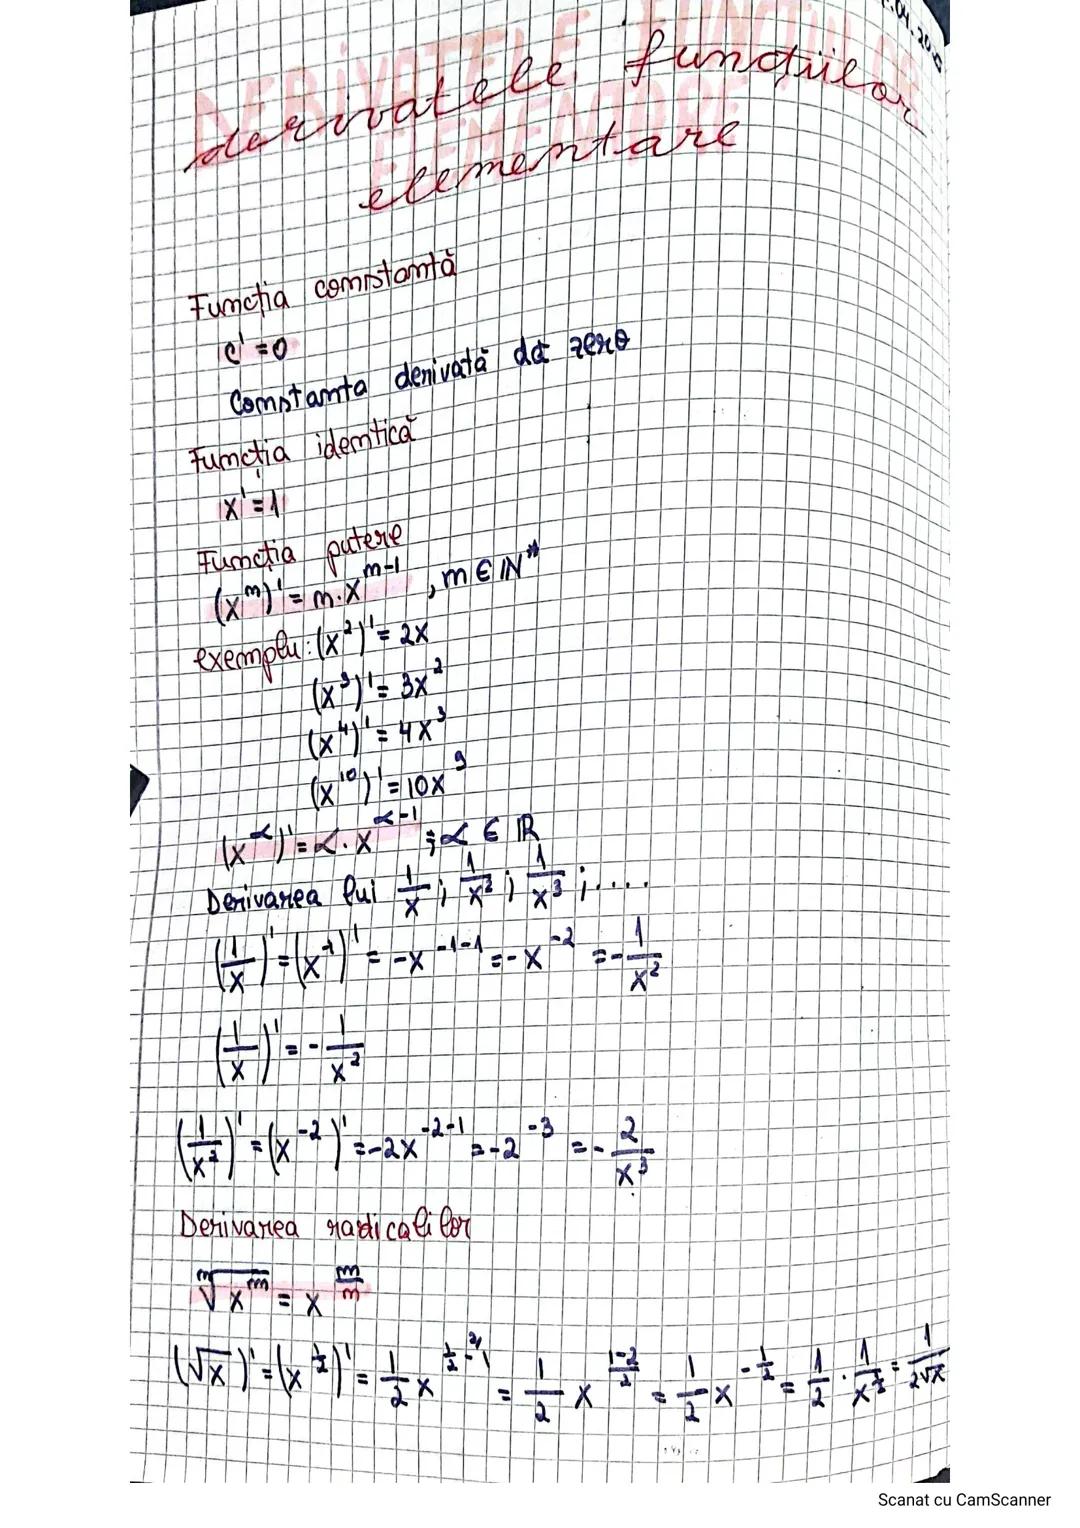 derivatele funcțiilor
elementare
Funcția constantă
c' = 0
Constanta derivată dă zero
Funcția identică
x' = 1
Funcția putere
(xⁿ)' = n·xⁿ⁻¹, n ∈ ℕ*
exemplu: (x²)' = 2x
(x³)' = 3x²
(x⁴)' = 4x³
(x¹⁰)' = 10x⁹
(x^α)' = α·x^(α-1); α ∈ ℝ
Derivarea lui 1/x; 1/x²; 1/x³; ....
(1/x)' = (x⁻¹)' = -x⁻¹⁻¹ = -x⁻² = -1/x²
(1/x)' = -1/x²
(1/x²)' = (x⁻²)' = -2x⁻²⁻¹ = -2⁻³ = -2/x³
Derivarea radicalilor
ⁿ√(x^m) = x^(m/n)
(√x)' = (x^(1/2))' = 1/2 x^(1/2 - ²⁾1) = 1/2 x^((1-2)/2) = 1/2 x^(-1/2) = 1/2 · 1/x^(1/2) = 1/(2√x)
Scanat cu CamScanner